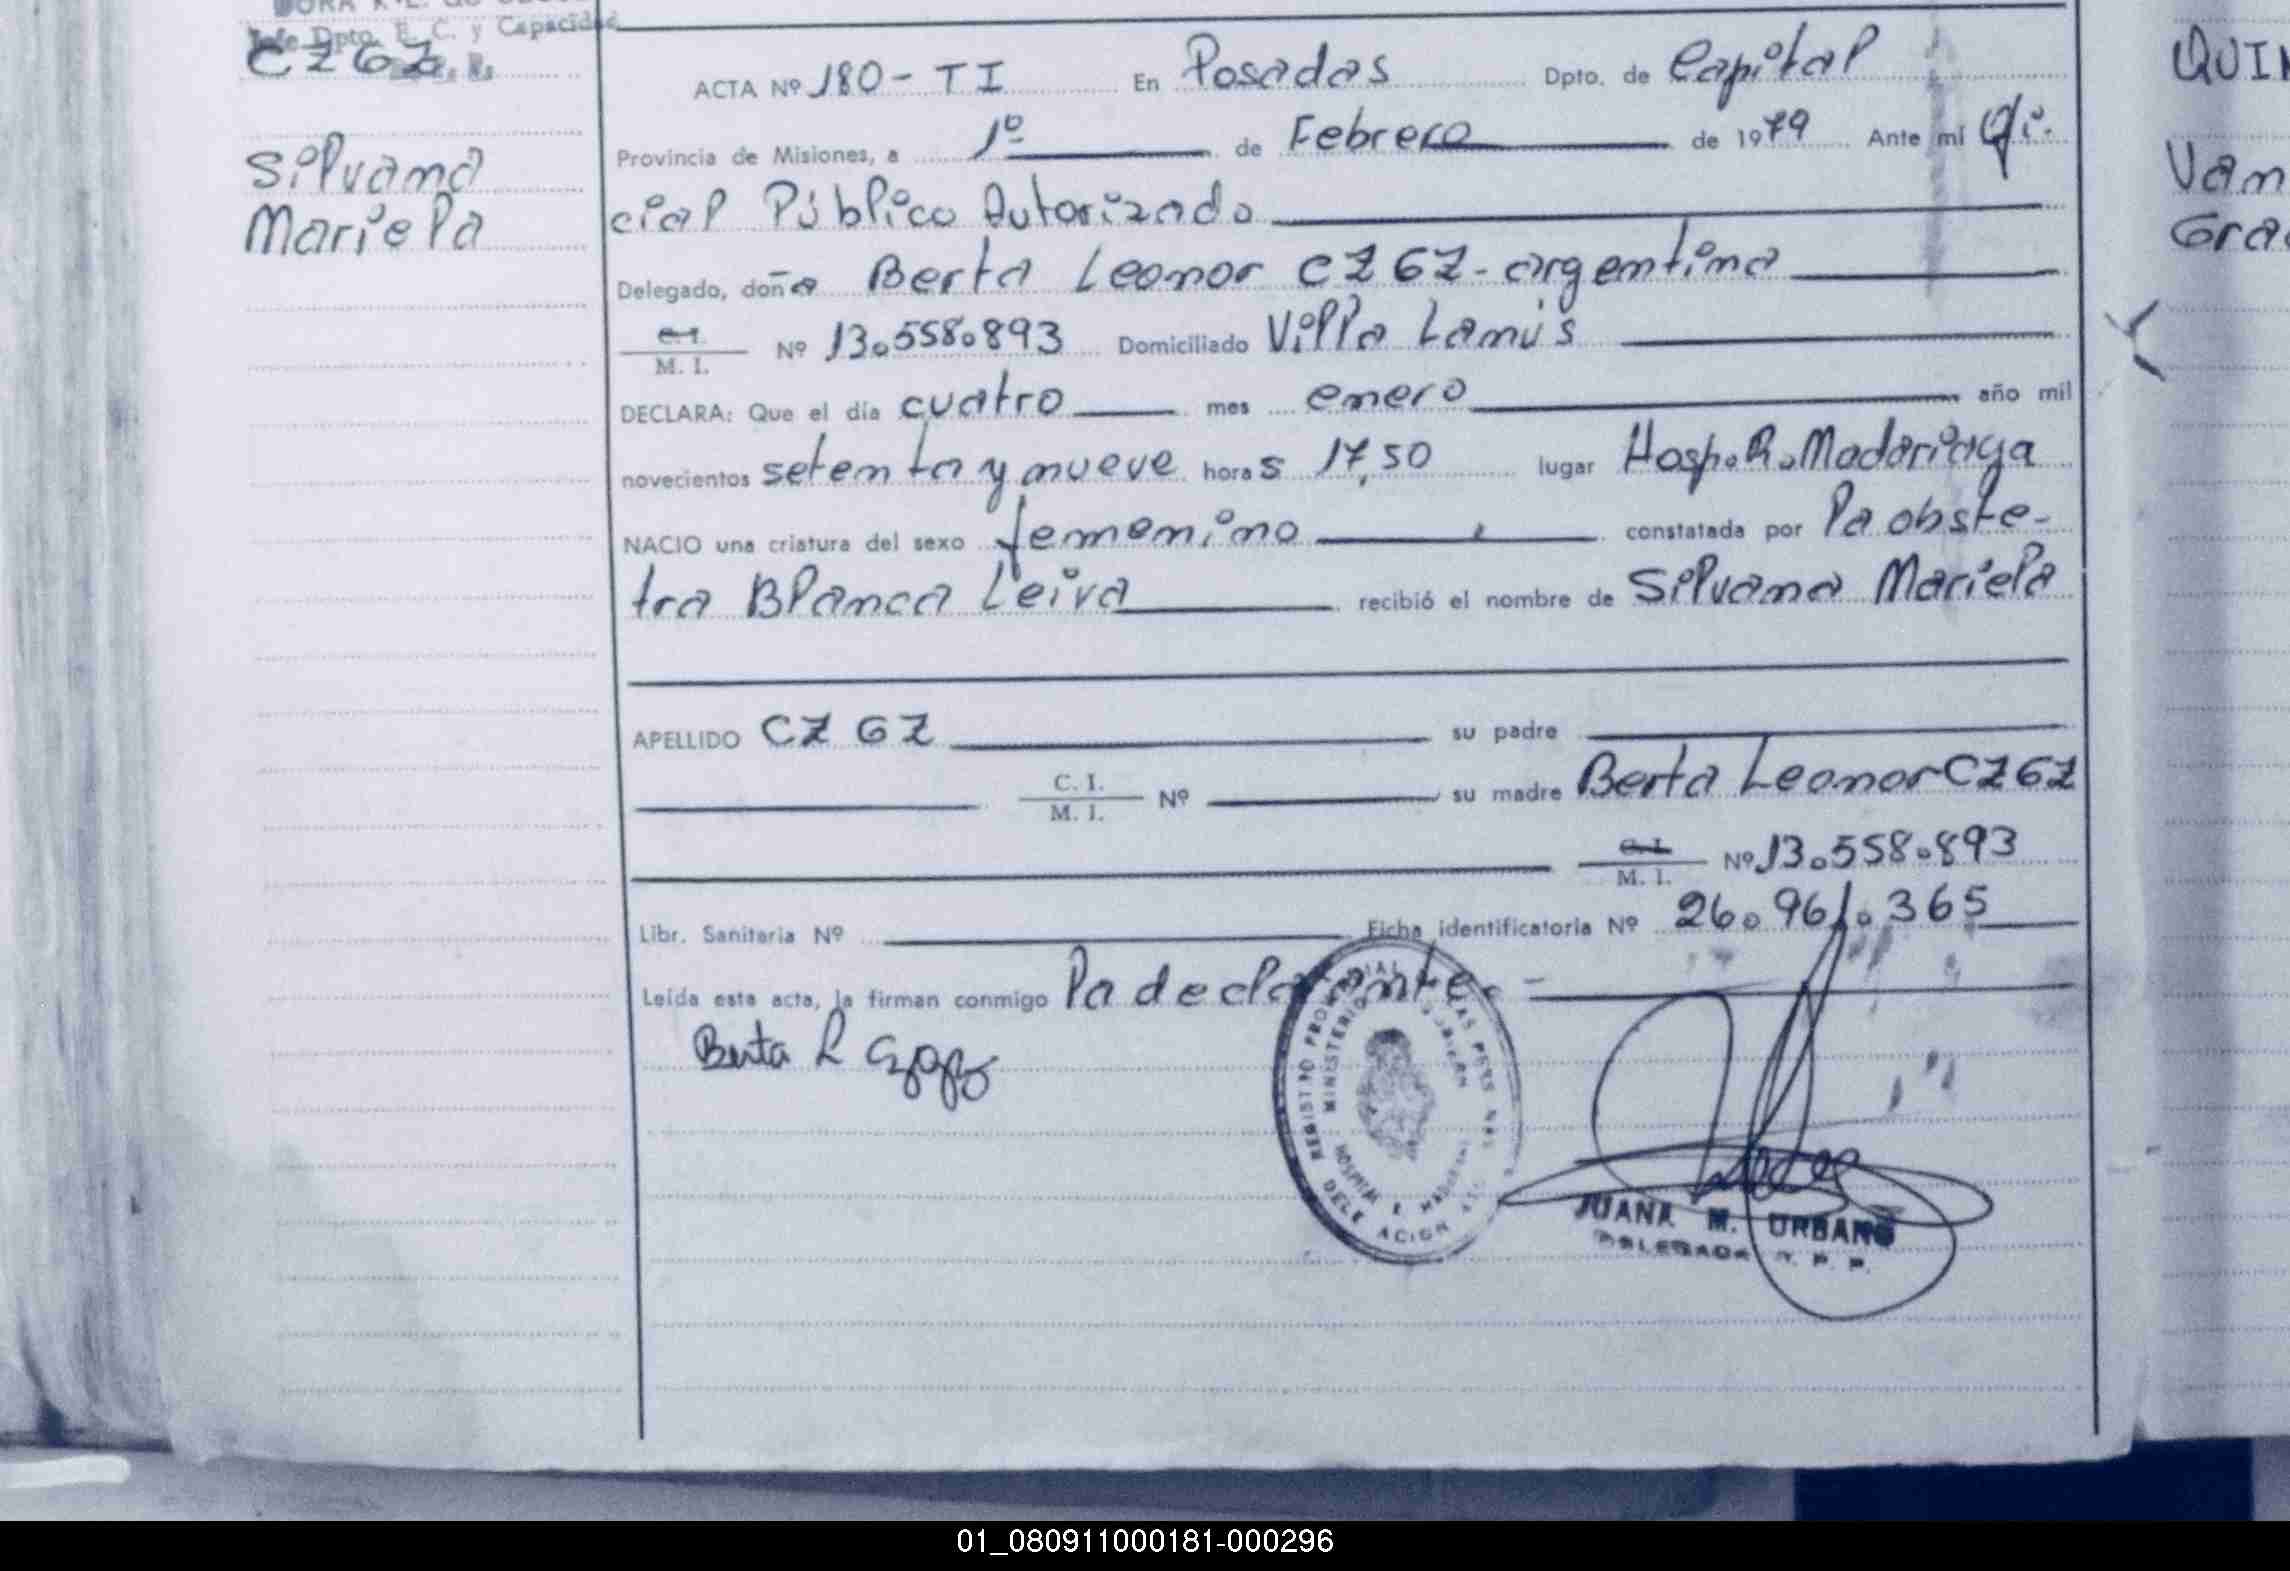 Jefe Dpto. E. C. y Capacidad
CZGZ
Silvana
Mariela
ACTA Nº 180 - TI En Posadas Dpto. de Capital
Provincia de Misiones, a 1º de Febrero de 1979 Ante mí Ofi-
cial Público Autorizado
Delegado, doña Berta Leonor CZGZ - argentina
C.I. M. I. Nº 13.558.893 Domiciliado Villa Lanús
DECLARA: Que el día cuatro mes enero año mil
novecientos setenta y nueve horas 17,50 lugar Hosp. R. Madariaga
NACIO una criatura del sexo femenino constatada por la obste-
tra Blanca Leiva recibió el nombre de Silvana Mariela
APELLIDO CZGZ su padre
C. I. M. I. Nº su madre Berta Leonor CZGZ
C. I. M. I. Nº 13.558.893
Libr. Sanitaria Nº Ficha identificatoria Nº 26.961.365
Leída esta acta, la firman conmigo la declarante. -
Berta L
REGISTRO PROVINCIAL DE LAS PERSONAS
MINISTERIO GOBIERNO
HOSPITAL R. MADARIAGA
DELEGACION
JUANA M. URBANO
DELEGADA R. P. P.
QUIN
Van
Gra
01_080911000181-000296